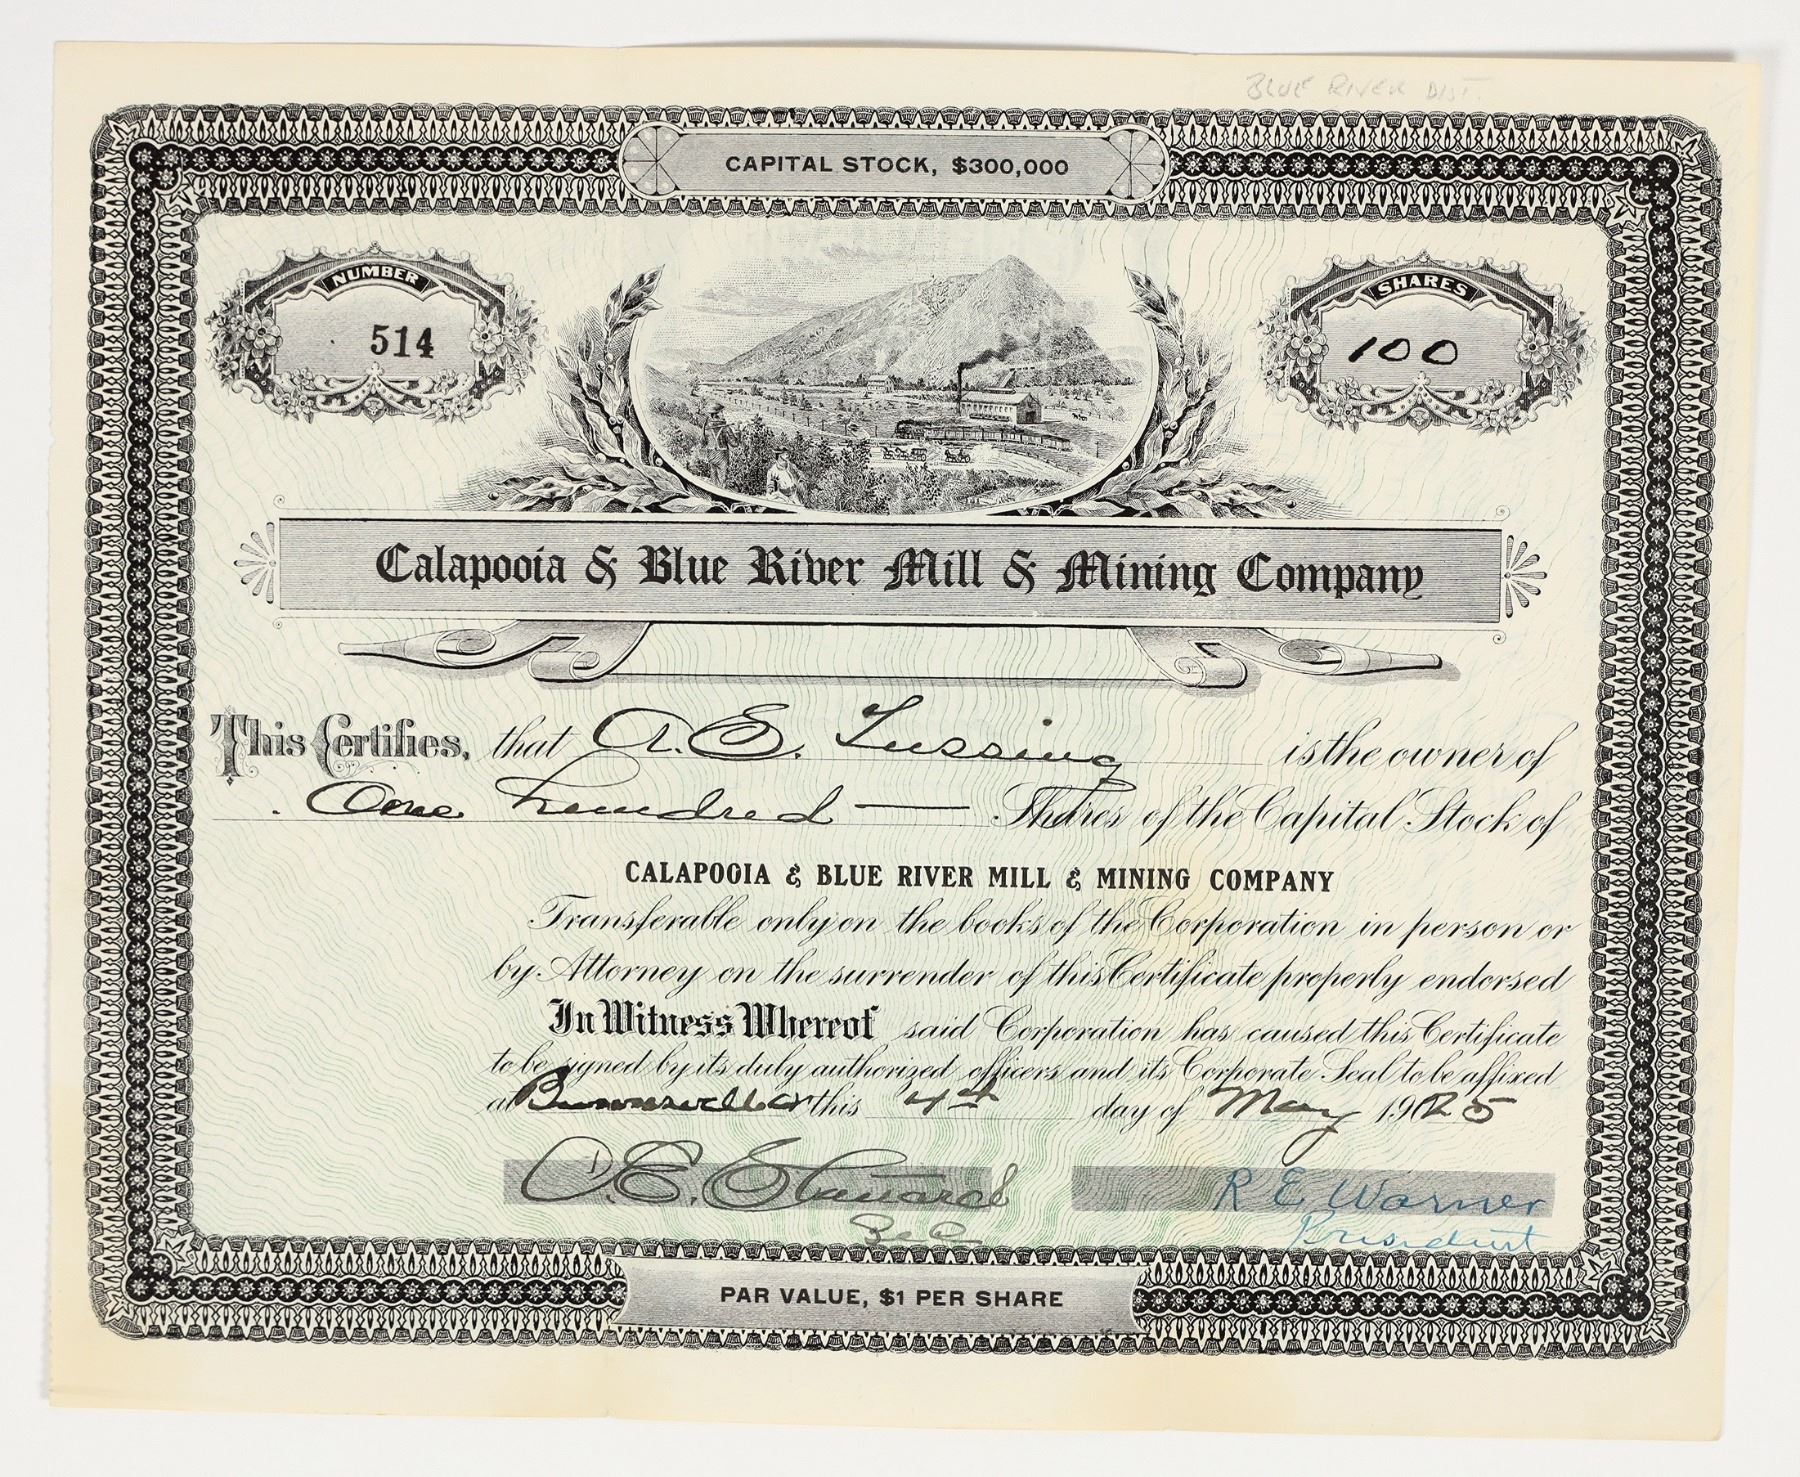 BLUE RIVER DIST.
CAPITAL STOCK, $300,000
NUMBER
514
SHARES
100
Calapooia & Blue River Mill & Mining Company
This Certifies, that A. E. Tussing is the owner of
One hundred — Shares of the Capital Stock of
CALAPOOIA & BLUE RIVER MILL & MINING COMPANY
Transferable only on the books of the Corporation in person or
by Attorney on the surrender of this Certificate properly endorsed
In Witness Whereof said Corporation has caused this Certificate
to be signed by its duly authorized officers and its Corporate Seal to be affixed
at this 4th day of May 1925
R E Warner
President
PAR VALUE, $1 PER SHARE